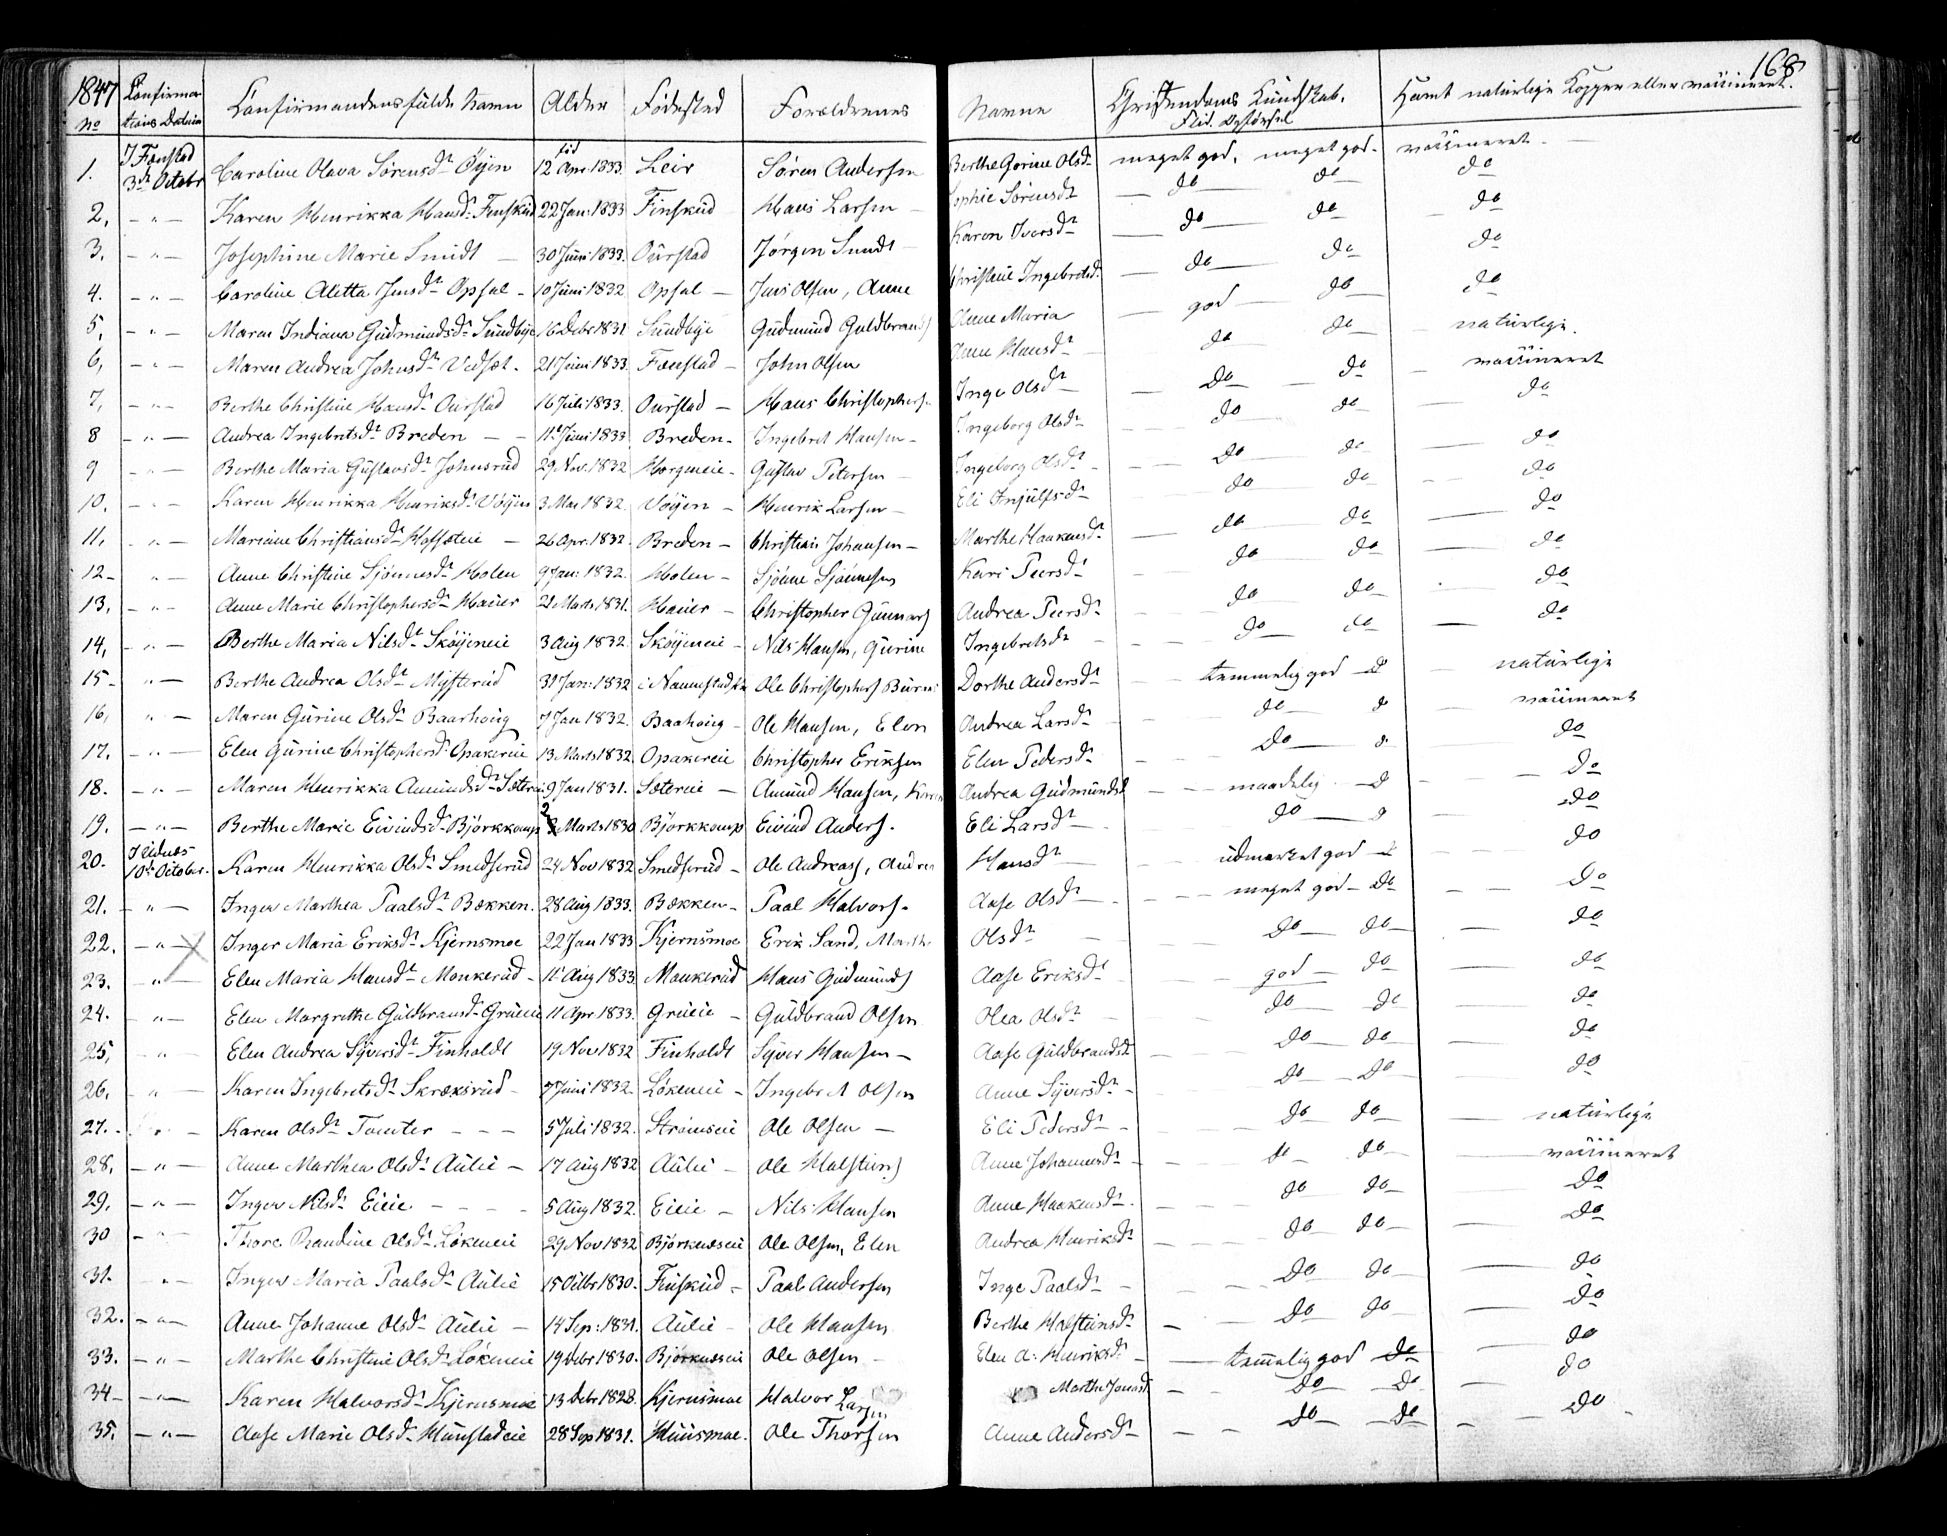 168
1847 Confirmations Datum Confirmandens fulde Navn Alder Fødested Forældrenes Navne Christendoms Kundskab. Havt naturlige Kopper eller vaccineret.
No Flid. Opførsel
1. I Fenstad 3die Octobr Caroline Olava Sørensdr Øyen 12 Apr. 1833 Leir Søren Andersen Berthe Gorine Olsdr meget god. meget god. vaccineret
2, - " - Karen Henrikka Hansdr Finskud 22 Jan: 1833 Finskud Hans Larsen Sophie Sørensdr do do do
3. - " - Josephine Marie Smidt 30 Juni 1833. Ourstad Jørgen Smidt Karen Iversdr do do do
4. - " - Caroline Aletta Jensdr Opsal 10 Juni 1832 Opsal Jens Olsen, Anne Christine Ingebretsdr do do do
5, - " - Maren Indiana Gudmundsdr Sundbye 16 Debr 1831 Sundbye Gudmund Guldbrands Anne Maria god do do
6, - " - Maren Andrea Johnsdr Vedset. 21 Juni 1833. Fenstad John Olsen Anne Hansdr do do naturlige.
7, - " - Berthe Christine Hansdr Ourstad 16 Juli 1833. Ourstad Hans Christophers. Inge Olsdr do do vaccineret
8 - " - Andrea Ingebretsdr Breden 11 Juni 1833 Breden Ingebret Hansen Ingeborg Olsdr do do do
9 - " - Berthe Maria Gustavsdr Johnsrud 29 Nov. 1832 Horgeneie Gustav Petersen Ingeborg Olsdr do do do
10. - " - Karen Henrikka Henriksdr Vøyen 3 Mai 1832. Vøyen Henrik Larsen Eli Injulfsdr do do do
11, - " - Mariane Christiansdr Hofseteie 26 Apr. 1832. Breden Christian Johansen Marthe Haakensdr do do do
12 " Anne Christine Sjønnesdr Holen 9 Jan: 1832. Holen Sjønne Sjønnesen Kari Peersdr do do do
13, - " - Anne Marie Christophersdr Hauer 21 Marts 1831. Hauer Christopher Gunnars Andrea Peersdr do do do
14, - " - Berthe Maria Nilsdr Skøyeneie 3 Aug 1832. Skøyeneie Nils Hansen, Gurine Ingebretsdr do do do
15 - " - Berthe Andrea Olsdr Mysterud 31 Jan: 1832 i Nannestad Ole Christophers Dorthe Andersdr temmelig god do naturlige
16, " - Maren Gurine Olsdr Baarhoug 7 Jan 1832. Baahoug Ole Hansen, Elen Andrea Larsdr do do vaccineret
17. - " - Elen Gurine Christophersdr Opakereie 13 Marts 1832. Opakereie Christopher Eriksen Elen Pedersdr do do do
18. - " - Maren Henrikka Amundsdr Setereie 9 Jan 1831. Setereie Amund Hansen, Karen Andrea Gudmundsd maadelig do do
19. - " - Berthe Marie Eivindsdr Bjørkkomp 2 Marts 1830 Bjørkkomp Eivind Anders. Eli Larsdr do do do
20. I Udnes 10de October. Karen Henrikka Olsdr Smedserud 24 Nov 1832 Smedserud Ole Andreass, Andrea Hansdr udmerket god do do
21. - " - Inger Marthea Paalsdr Bækken. 28 Aug 1833. Bækken Paal Halvors. Aase Olsdr meget god do do
22. - " - X Inger Maria Eriksdr Kjernsmoe 22 Jan 1833 Kjernsmoe Erik Sand, Marthe Olsdr do do do
23. " - Elen Maria Hansdr Monkerud 11 Aug 1833. Monkerud Hans Gudmunds Aase Eriksdr god do do
24. - " - Elen Margrethe Guldbrandsdr Grueeie 11 Apr 1833. Grueie Guldbrand Olsen Olea Olsdr do do do
25, - " - Elen Andrea Syversdr Finholdt 19 Nov 1832 Finholdt Syver Hansen Aase Guldbrandsdr do do do
26. " - Karen Ingebretsdr Skræksrud 7 Juni 1832. Løkeneie Ingebret Olsen Anne Syversdr do do do
27. - Karen Olsdr Tomter 5 Juli 1832. Strømseie Ole Olsen Eli Pedersdr do do naturlige
28. - " - Anne Marthea Olsdr Aulie 17 Aug 1832 Aulie Ole Halstens) Anne Johannesdr do do vaccineret
29. - " - Inger Nilsdr Eieie 5 Aug 1832. Eieie Nils Hansen Anne Haakensdr do do do
30 - " - Thore Randine Olsdr Løkeneie 29 Nov 1832 Bjørkneseie Ole Olsen, Elen Andrea Henriksdr do do do
31. - " - Inger Maria Paalsdr Aulie 15 Octbr 1830. Finskud Paal Andersen Inge Paalsdr do do do
32. - " - Anne Johanne Olsdr Aulie 14 Sep: 1831. Aulie Ole Hansen Berthe Halstensdr do do do
33. - " - Marthe Christine Olsdr Løkeneie 19 Debr 1830. Bjørkneseie Ole Olsen Elen A: Henriksdr temelig god do do
34 - " - Karen Halvorsdr Kjernsmoe 13 Debr 1828. Kjernsmoe Halvor Larsen Marthe Jonasd do do do
35. - " - Aase Marie Olsdr Hunstadeie 28 Sep 1831. Huusmoe. Ole Thorsen Anne Andersdr do do do